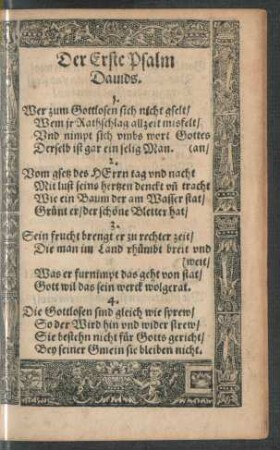 Der Erste Psalm
Dauids.
1.
Wer zum Gottlosen sich nicht gselt/
Wem jr Rathschlag allzeit misfelt/
Vnd nimpt sich vmbs wort Gottes
Derselb ist gar ein selig Man. (an/
2.
Vom gsetz des HErrn tag vnd nacht
Mit lust seins hertzen denckt vñ tracht
Wie ein Baum der am Wasser stat/
Grünt er/ der schöne Bletter hat/
3.
Sein frucht brengt er zu rechter zeit/
Die man im Land rhümbt breit vnd
(weit/
Was er furnimpt das geht von stat/
Gott wil das sein werck wolgerat.
4.
Die Gottlosen sind gleich wie sprew/
So der Wird hin vnd wider strew/
Sie bestehn nicht für Gotts gericht/
Bey seiner Gmein sie bleiben nicht.